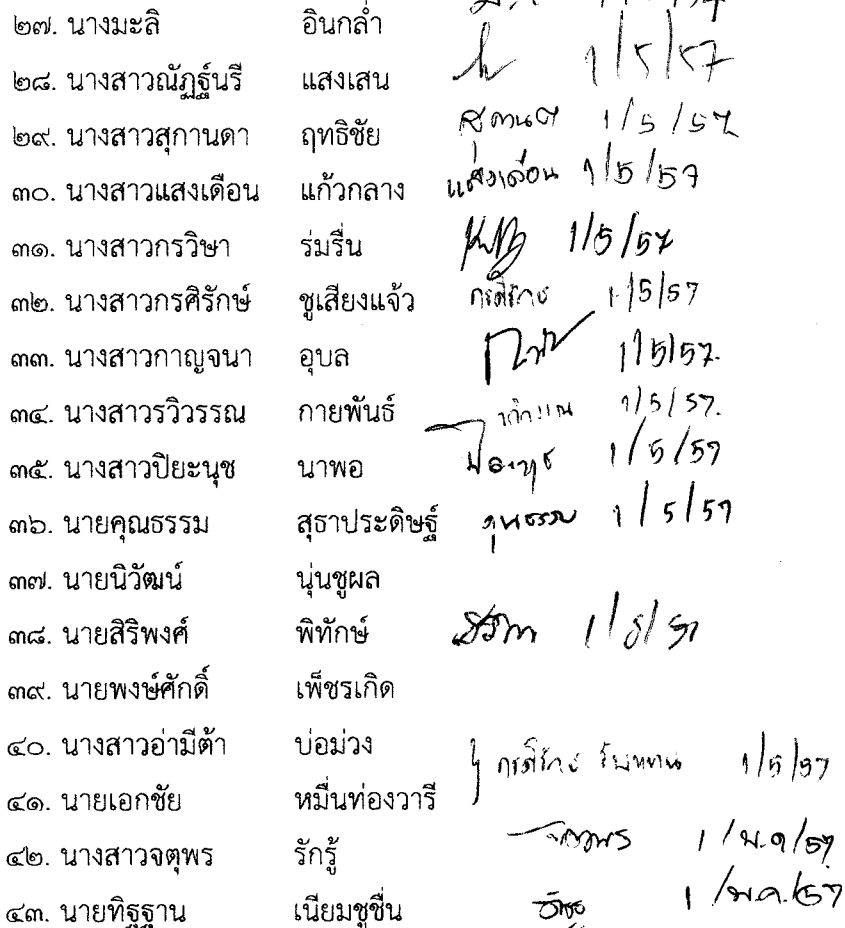 ๒๗. นางมะลิ อินกล่ำ
๒๘. นางสาวณัฏฐ์นรี แสงเสน 1/5/57
๒๙. นางสาวสุกานดา ฤทธิชัย 1/5/57
๓๐. นางสาวแสงเดือน แก้วกลาง แสงเดือน 1/5/57
๓๑. นางสาวกรวิษา ร่มรื่น 1/5/57
๓๒. นางสาวกรศิรักษ์ ชูเสียงแจ้ว กรศิรักษ์ 1/5/57
๓๓. นางสาวกาญจนา อุบล 1/5/57.
๓๔. นางสาวรวิวรรณ กายพันธ์ 1/5/57.
๓๕. นางสาวปิยะนุช นาพอ ปิยะนุช 1/5/57
๓๖. นายคุณธรรม สุธาประดิษฐ์ คุณธรรม 1/5/57
๓๗. นายนิวัฒน์ นุ่นชูผล
๓๘. นายสิริพงศ์ พิทักษ์ 1/5/57
๓๙. นายพงษ์ศักดิ์ เพ็ชรเกิด
๔๐. นางสาวอ่ามีต้า บ่อม่วง กรศิรักษ์ รับแทน 1/5/57
๔๑. นายเอกชัย หมื่นท่องวารี
๔๒. นางสาวจตุพร รักรู้ จตุพร 1/พ.ค/57
๔๓. นายทิฐฐาน เนียมชูชื่น 1/พ.ค./57